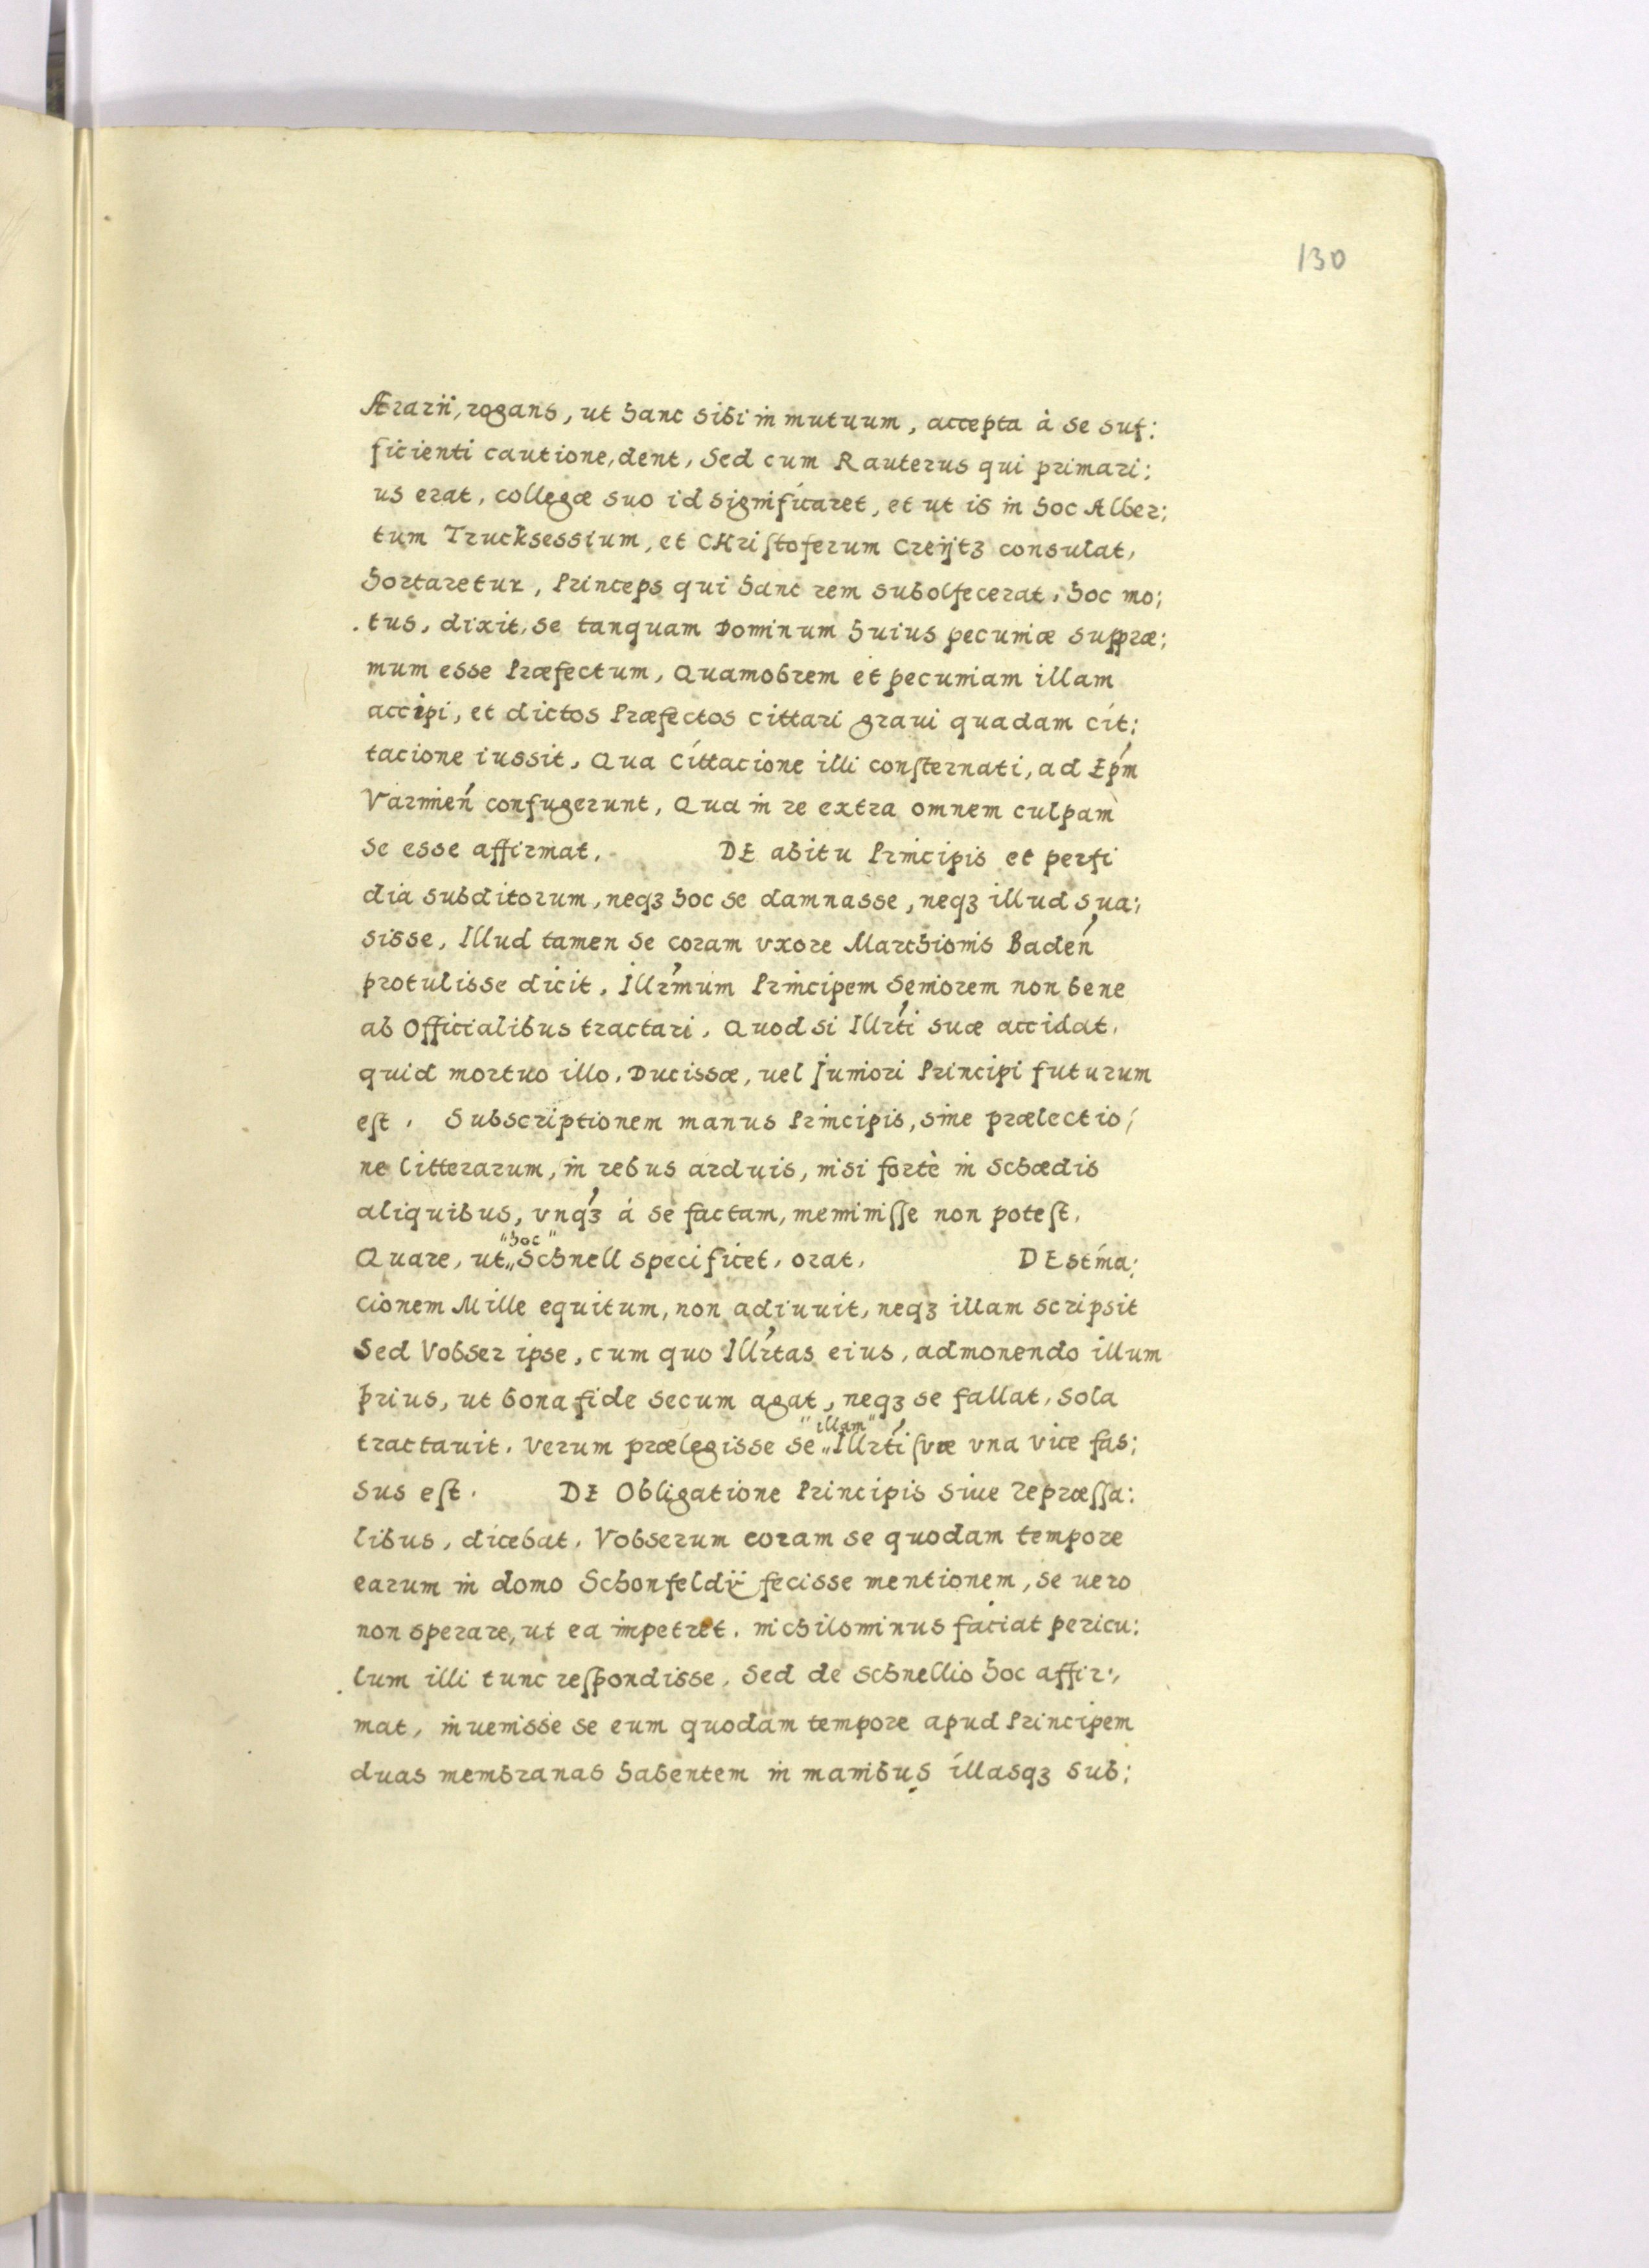 130
Ærarii, rogans, ut hanc sibi in mutuum, accepta à se suf:
ficienti cautione, dent, Sed cum Rauterus qui primari:
us erat, collegæ suo id significaret, et ut is in hoc Alber:
tum Trucksessium, et CHristoferum Creijtz consulat,
hortaretur, Princeps qui hanc rem subolfecerat, hoc mo:
tus, dixit, se tanquam Dominum huius pecuniæ supræ:
mum esse Præfectum, Quamobrem et pecuniam illam
accipi, et dictos Præfectos cittari graui quadam cit:
tacione iussit, Qua cittacione illi consternati, ad Epm
Varmien confugerunt, Qua in re extra omnem culpam
se esse affirmat, DE abitu Principis et perfi
dia subditorum, neqz hoc se damnasse, neqz illud sua:
sisse, Illud tamen se coram vxore Marchionis Baden
protulisse dicit, Illrmum Principem Seniorem non bene
ab Officialibus tractari, Quod si Illrti suæ accidat,
quid mortuo illo, Ducissæ, uel Juniori Principi futurum
est, Subscriptionem manus Principis, sine prælectio:
ne litterarum, in rebus arduis, nisi fortè in schædis
aliquibus, vnqz á se factam, meminisse non potest,
Quare, ut „Schnell specificet, orat, DEstina:
"hoc"
cionem Mille equitum, non adiuuit, neqz illam scripsit
Sed Vobser ipse, cum quo Illrtas eius, admonendo illum
prius, ut bona fide secum agat, neqz se fallat, sola
tractauit. Verum prælegisse se „Illrti suæ vna vice fas:
"illam"
sus est. DE Obligatione Principis siue repræssa:
libus, dicebat, Vobserum coram se quodam tempore
earum in domo Schonfeldij fecisse mentionem, se uero
non sperare, ut ea impetret, nichilominus faciat pericu:
lum illi tunc respondisse, Sed de Schnellio hoc affir:
mat, inuenisse se eum quodam tempore apud Principem
duas membranas habentem in manibus illasqz sub: